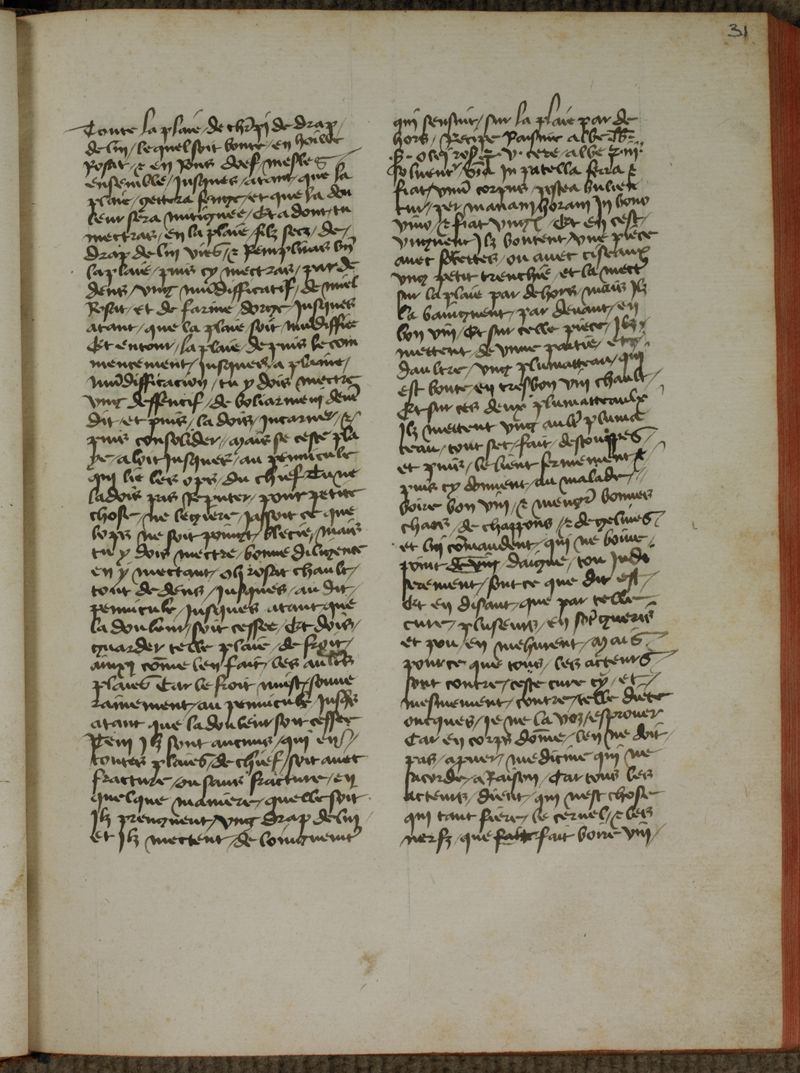 31
Toute la plaie / de cherpi de drap /
de lin / lequel soit boute / en huille
rosat / & en moeuf mesles
ensemble / jusques atant / que la
plaie / gettera fenge / et que la dou
leur sera mitiguee / Et adont tu
mectras / en la plaie / filz secz / de /
drap de lin vies / & rempliras bn
la plaie / puis cy mectras / par de
dens / ung mundifficatif / de miel
rosat / et de farine / dorge / jusques
atant / que la plaie soit / mundiffie
Et entour / la plaie / depuis le com
mencement / jusques a plaine /
mundifficacion / tu y dois mectre
ung deffencif / de boliarmeni deva
dit / et puis / la dois / incarner / &
puis consolider / Mais se ceste pla
ye / aloit jusques / au pennicule
qui lie les os / du chief / Tu ne
la dois pas reputer / pour petite
chose / ne legiere / jassoit ce que
los ne soit point / blecie / mais
tu y dois mectre / bonne diligence
en y mectant / ole rosat chault /
tout dedens / jusques / au dit /
pennicule / jusques atant que
la douleur / soit cessee / Et dois /
guarder telle plaie / de froit /
ainsi come len fait / les aultres
plaies Car le froit / nuist / souve
rainement / au pennicule / jusqs
atant que la douleur soit cessee
Item Ilz sont aucuns / qui en /
toutes plaies / de chief / soit avec
fracture / ou sans fracture / en
quelque maniere / quelle soit
Ilz prengnent / ung drap de lin /
et Ilz mectent / de loingnement
qui sensuit / sur la plaie par de
hors / Recipe
olei ros v cere albe
in patella ferrea &
fiat unum corpus / postea bulien
tur / per mediam horam in bono
vino / & fiat Et en cest /
unguent Ilz boutent / une piece
avec forcettes / ou avec ciseaux
ung petit trenchie / et la mect
sur la plaie par dehors / mais Ilz
la baingnent / par devant / en
bon vin / Et sur celle piece / Ilz
mettent / de lune partie / et
daultre / ung plumasseau / qui
est boute en tresbon vin chault /
Et sur ces deux plumasseaulx
Ilz mettent ung aultre pluma
ceau / tout sec / fait / destouppes /
et puis / le lient fermement &
puis cy donnent / au malade /
boire bon vin / & mengier bonnes
chars / de chappons / & de gelines
et lui comandent / qui ne boive /
point daigue /
ferement / sont ce que dit est /
Et en disant / que par telle
cure / plusieurs / en sont gueris
et pou / en meurent / Mais
pource que tous / les acteurs
sont contre / ceste cure cy / et /
mesmement / contre / telle diete
oncques / je ne la voz / esprouver
Car en corps dome / len ne doit /
pas / medicine qui ne
sacorde / a raison / Car tous les
acteurs / dient / qui nest chose
qui tant fiere / le cervel / & les
nerfz / que fait boire vin /